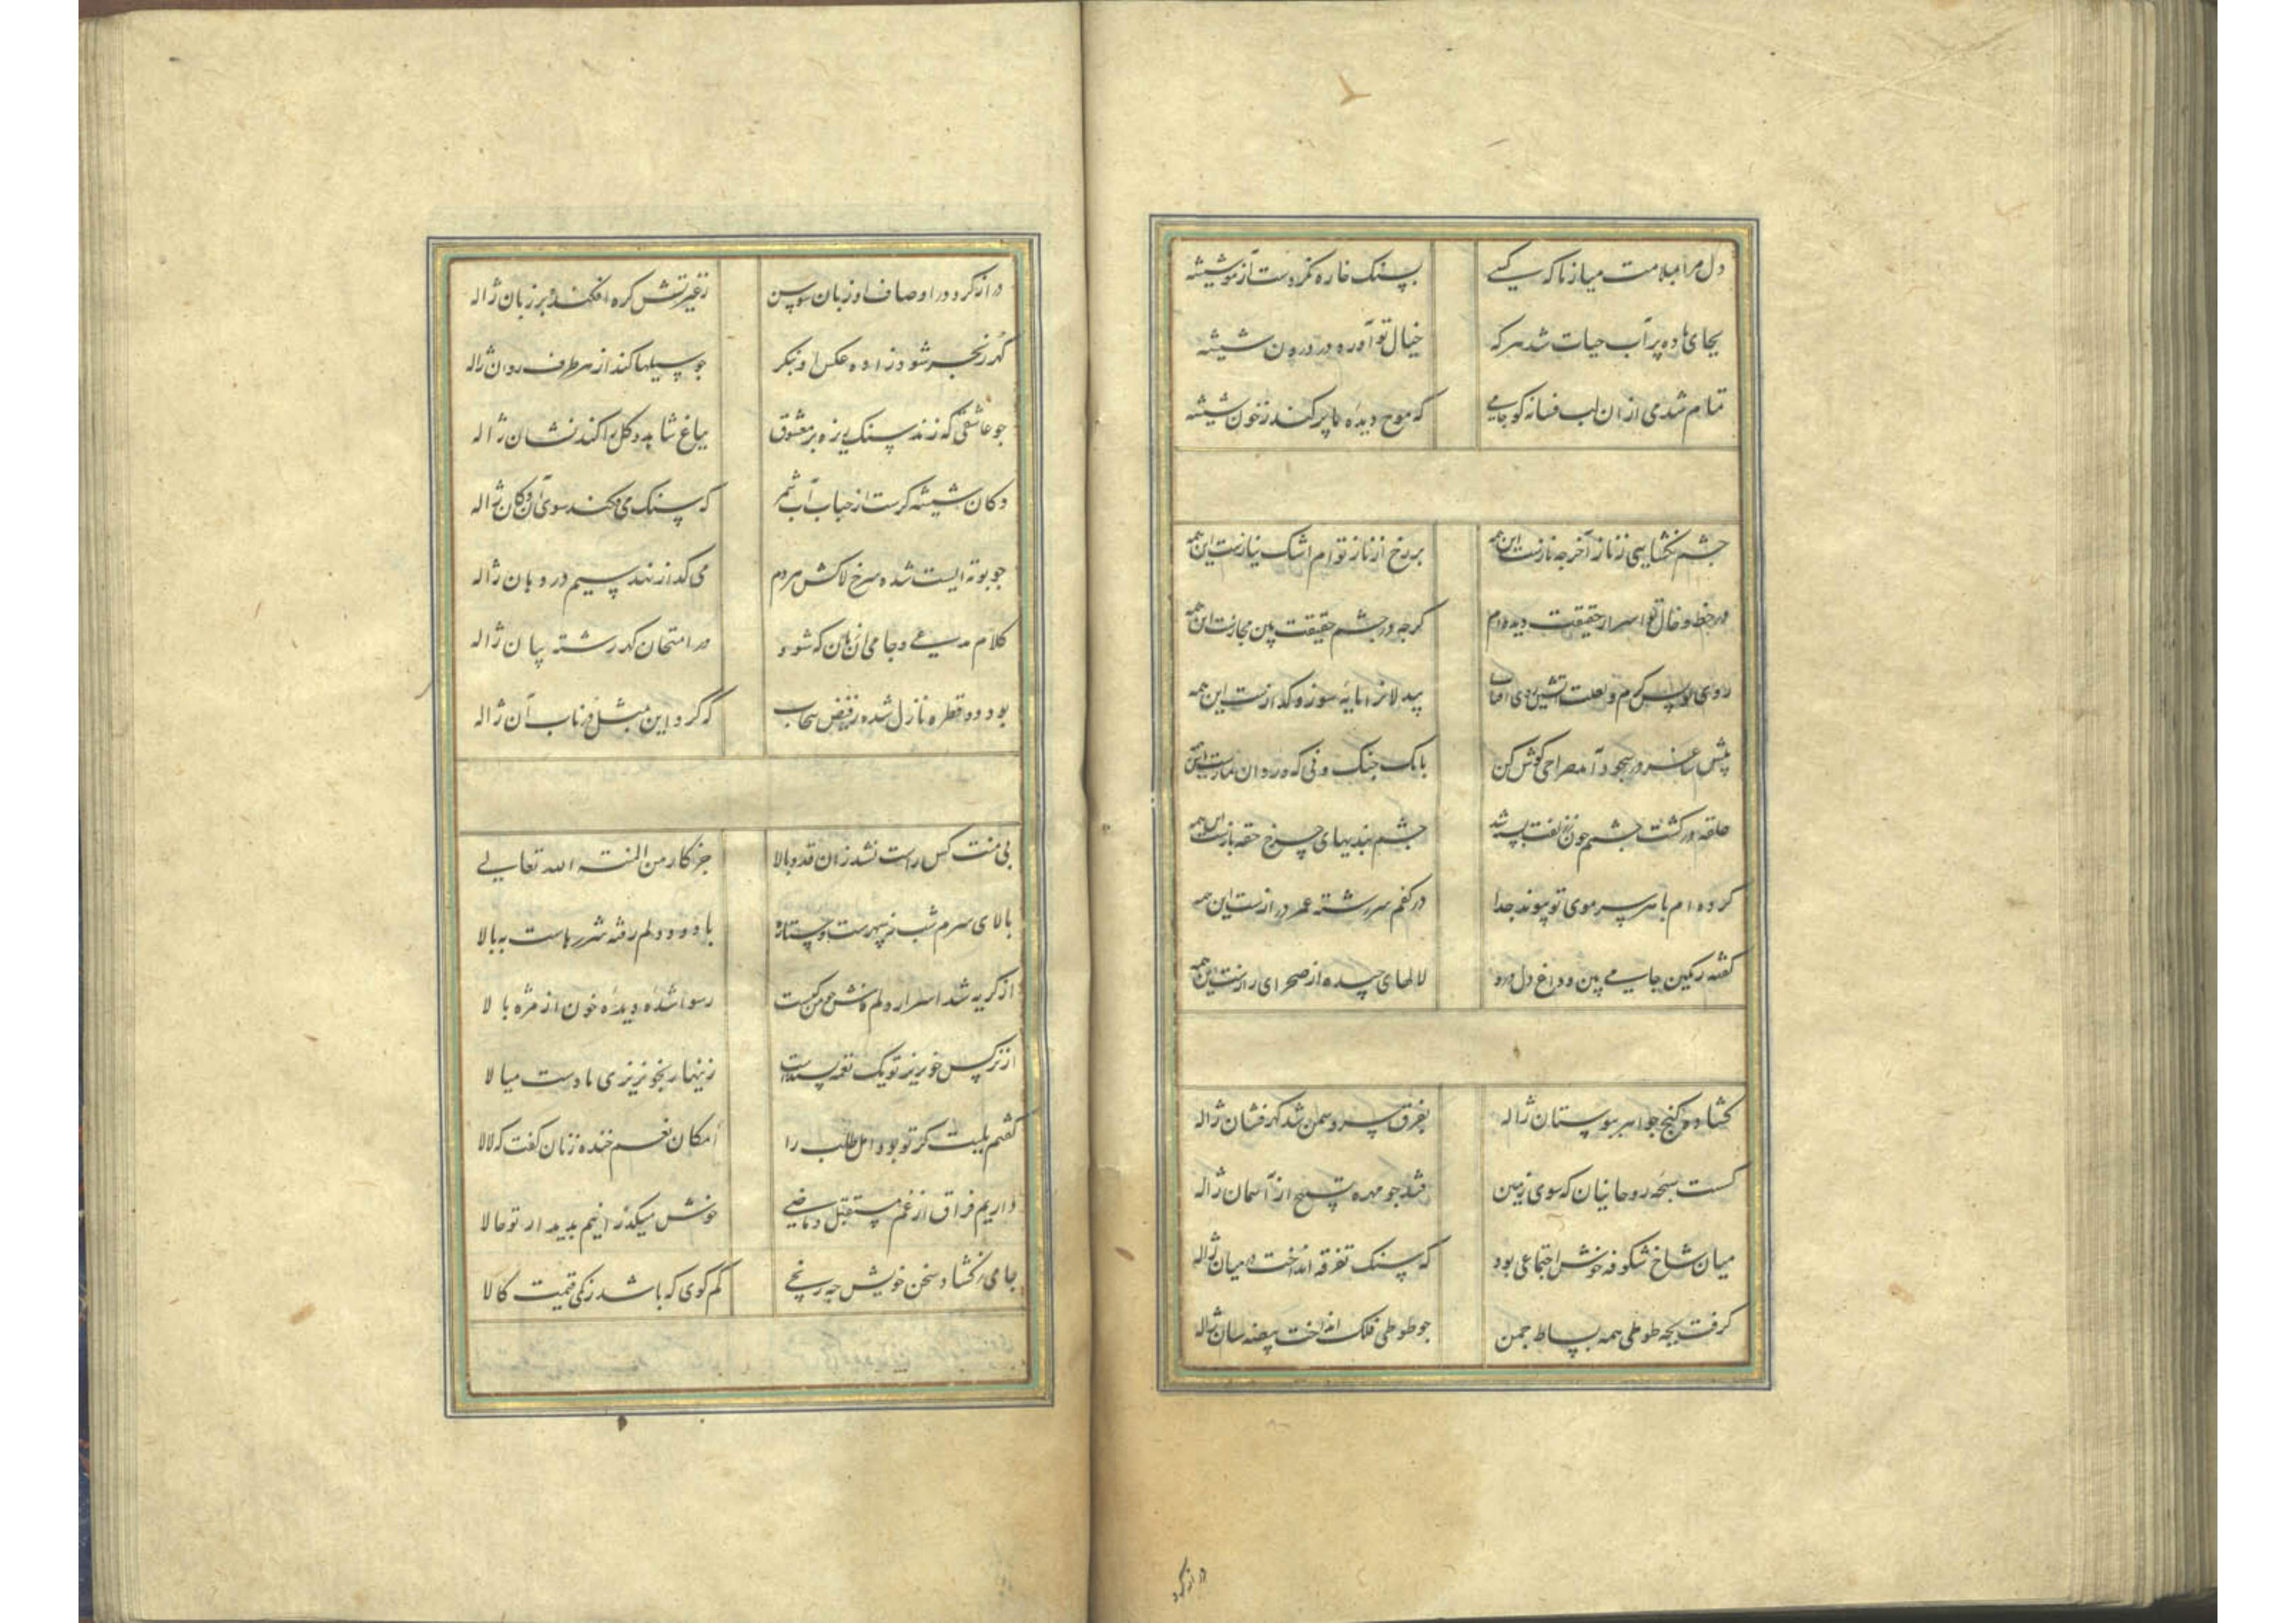 دل مرا بملامت میازما که کسی بسنک خاره نکردست آزمو شیشه
بجای باده پر آب حیات شد هر که خیال تو آورد در درون شیشه
تمام شد می ازان لب فسانه کو جامی که موج دیده ما پر کند ز خون شیشه
چشم نکشایی ز ناز آخر چه نازست این همه بر رخ از ناز توام اشک نیازست این همه
در خط و خال تو اسرار حقیقت دیده ام کرچه در چشم حقیقت بین مجازست این همه
روی تو بس کرم و لعلت آتشین وی بیدلانرا مایه سوز و کدازست این همه
پیش ساغر در سجود آمد صراحی کوش کن بانک چنک و نی که در نمازست این
حلقه در کشت چشم چون چشم بندیهای چرخ حقه بازست این همه
کرده ام با هر سر موی تو پیوند جدا در کفم سررشته عمر درازست این همه
کفته رنکین جامی بین و داغ دل درو لالهای چیده از صحرای رازست این همه
کشاد کنج جواهر ببوستان ژاله بفرق سرو و سمن شد کهرفشان ژاله
کسست سبحه روحانیان که سوی زمین فتد چو مهره تسبیح از آسمان ژاله
میان شاخ شکوفه خوش اجتماعی بود که سنک تفرقه انداخت در میان ژاله
کرفت بچه طوطی همه بساط چمن چو طوطی فلک انداخت بیضه سان ژاله
در از کرد
دراز کرد در اوصاف او زبان سوسن ز غیرتش کره افکند بر زبان ژاله
کهر ز بحر شود زاده عکس او بنکر چو سیلها کند از هر طرف روان ژاله
چو عاشقی که زند سنک ریزه بر معشوق بباغ شاهد کل را کند نشان ژاله
دکان شیشه کرست از حباب آب شمر که سنک می فکند سوی آن دکان ژاله
چو بوته ایست شده سرخ لاله کش مردم می کدازند سیم در دهان ژاله
کلام مدعی و جامی آن زمان که شود در امتحان کهر رشته بیان ژاله
بود دو قطره نازل شده ز فیض سحاب که کرد این مثل در ناب آن ژاله
بی منت کس راست نشد زان قد و بالا جز کار من المنته الله تعالی
بالای سرم شب نه سپهرست و ستاره با دود دلم رفته شررهاست ببالا
از کریه شد اسرار دلم فاش من کیست رسوا شده دیده خون از مژه بالا
از نرکس خونریز تو یک غمزه بسندست زینهار بخونریزی ما دست میالا
کفتم بلبت کز تو بود اهل طلب را امکان نعم خنده زنان کفت که لالا
داریم فراق از غم مستقبل و ماضی خوش میکذرانیم بدیدار تو حالا
جامی نکشاد سخن خویش چه رنجی کم کوی که باشد ز کمی قیمت کالا